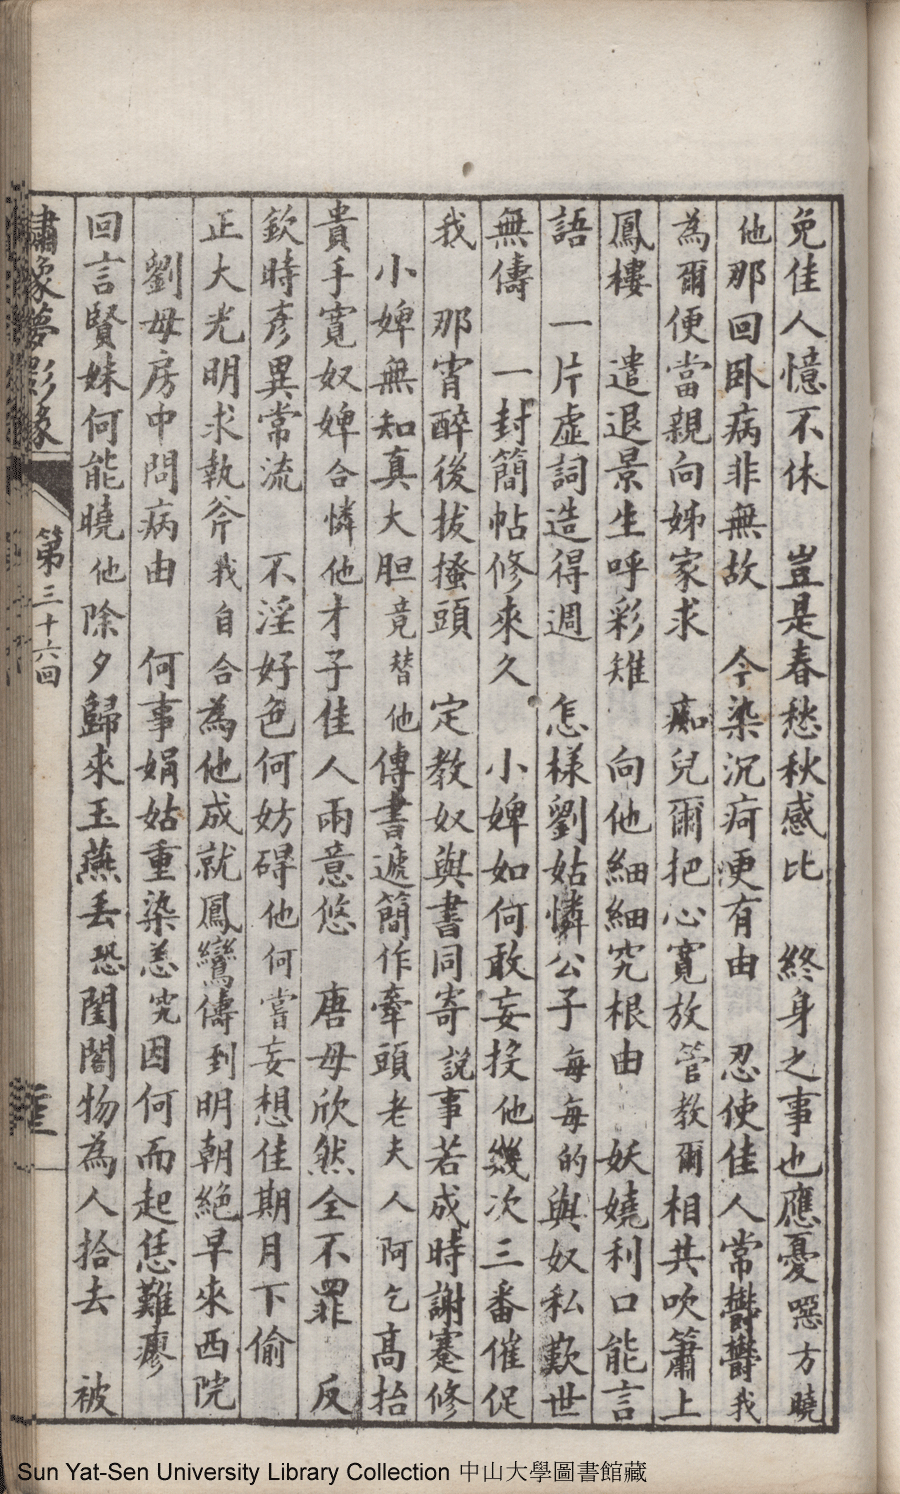 免佳人憶不休　豈是春愁秋感比　終身之事也應憂噁方曉
他那回卧病非無故　今染沉疴更有由　忍使佳人常鬱鬱我
為爾便當親向姊家求　痴兒爾把心寬放管教爾相共吹簫上
鳳樓　遣退景生呼彩雉　向他細細究根由　妖嬈利口能言
語　一片虛詞造得週　怎樣劉姑憐公子每每的與奴私歎世
無儔　一封簡帖修來久　小婢如何敢妄投他幾次三番催促
我　那宵醉後拔搔頭　定教奴與書同寄說事若成時謝蹇修
小婢無知真大胆竟替他傳書遞簡作牽頭老夫人阿乞高抬
貴手寬奴婢合憐他才子佳人兩意悠　唐母欣然全不罪　反
欽時彥異常流　不淫好色何妨碍他何嘗妄想佳期月下偷
正大光明求執斧我自合為他成就鳳鸞儔到明朝絕早來西院
劉母房中問病由　何事娟姑重染恙究因何而起恁難瘳
回言賢妹何能曉他除夕歸來玉燕丢恐閨閣物為人拾去　被
繡像夢影緣
第三十六回
Sun Yat-Sen University Library Collection 中山大學圖書館藏